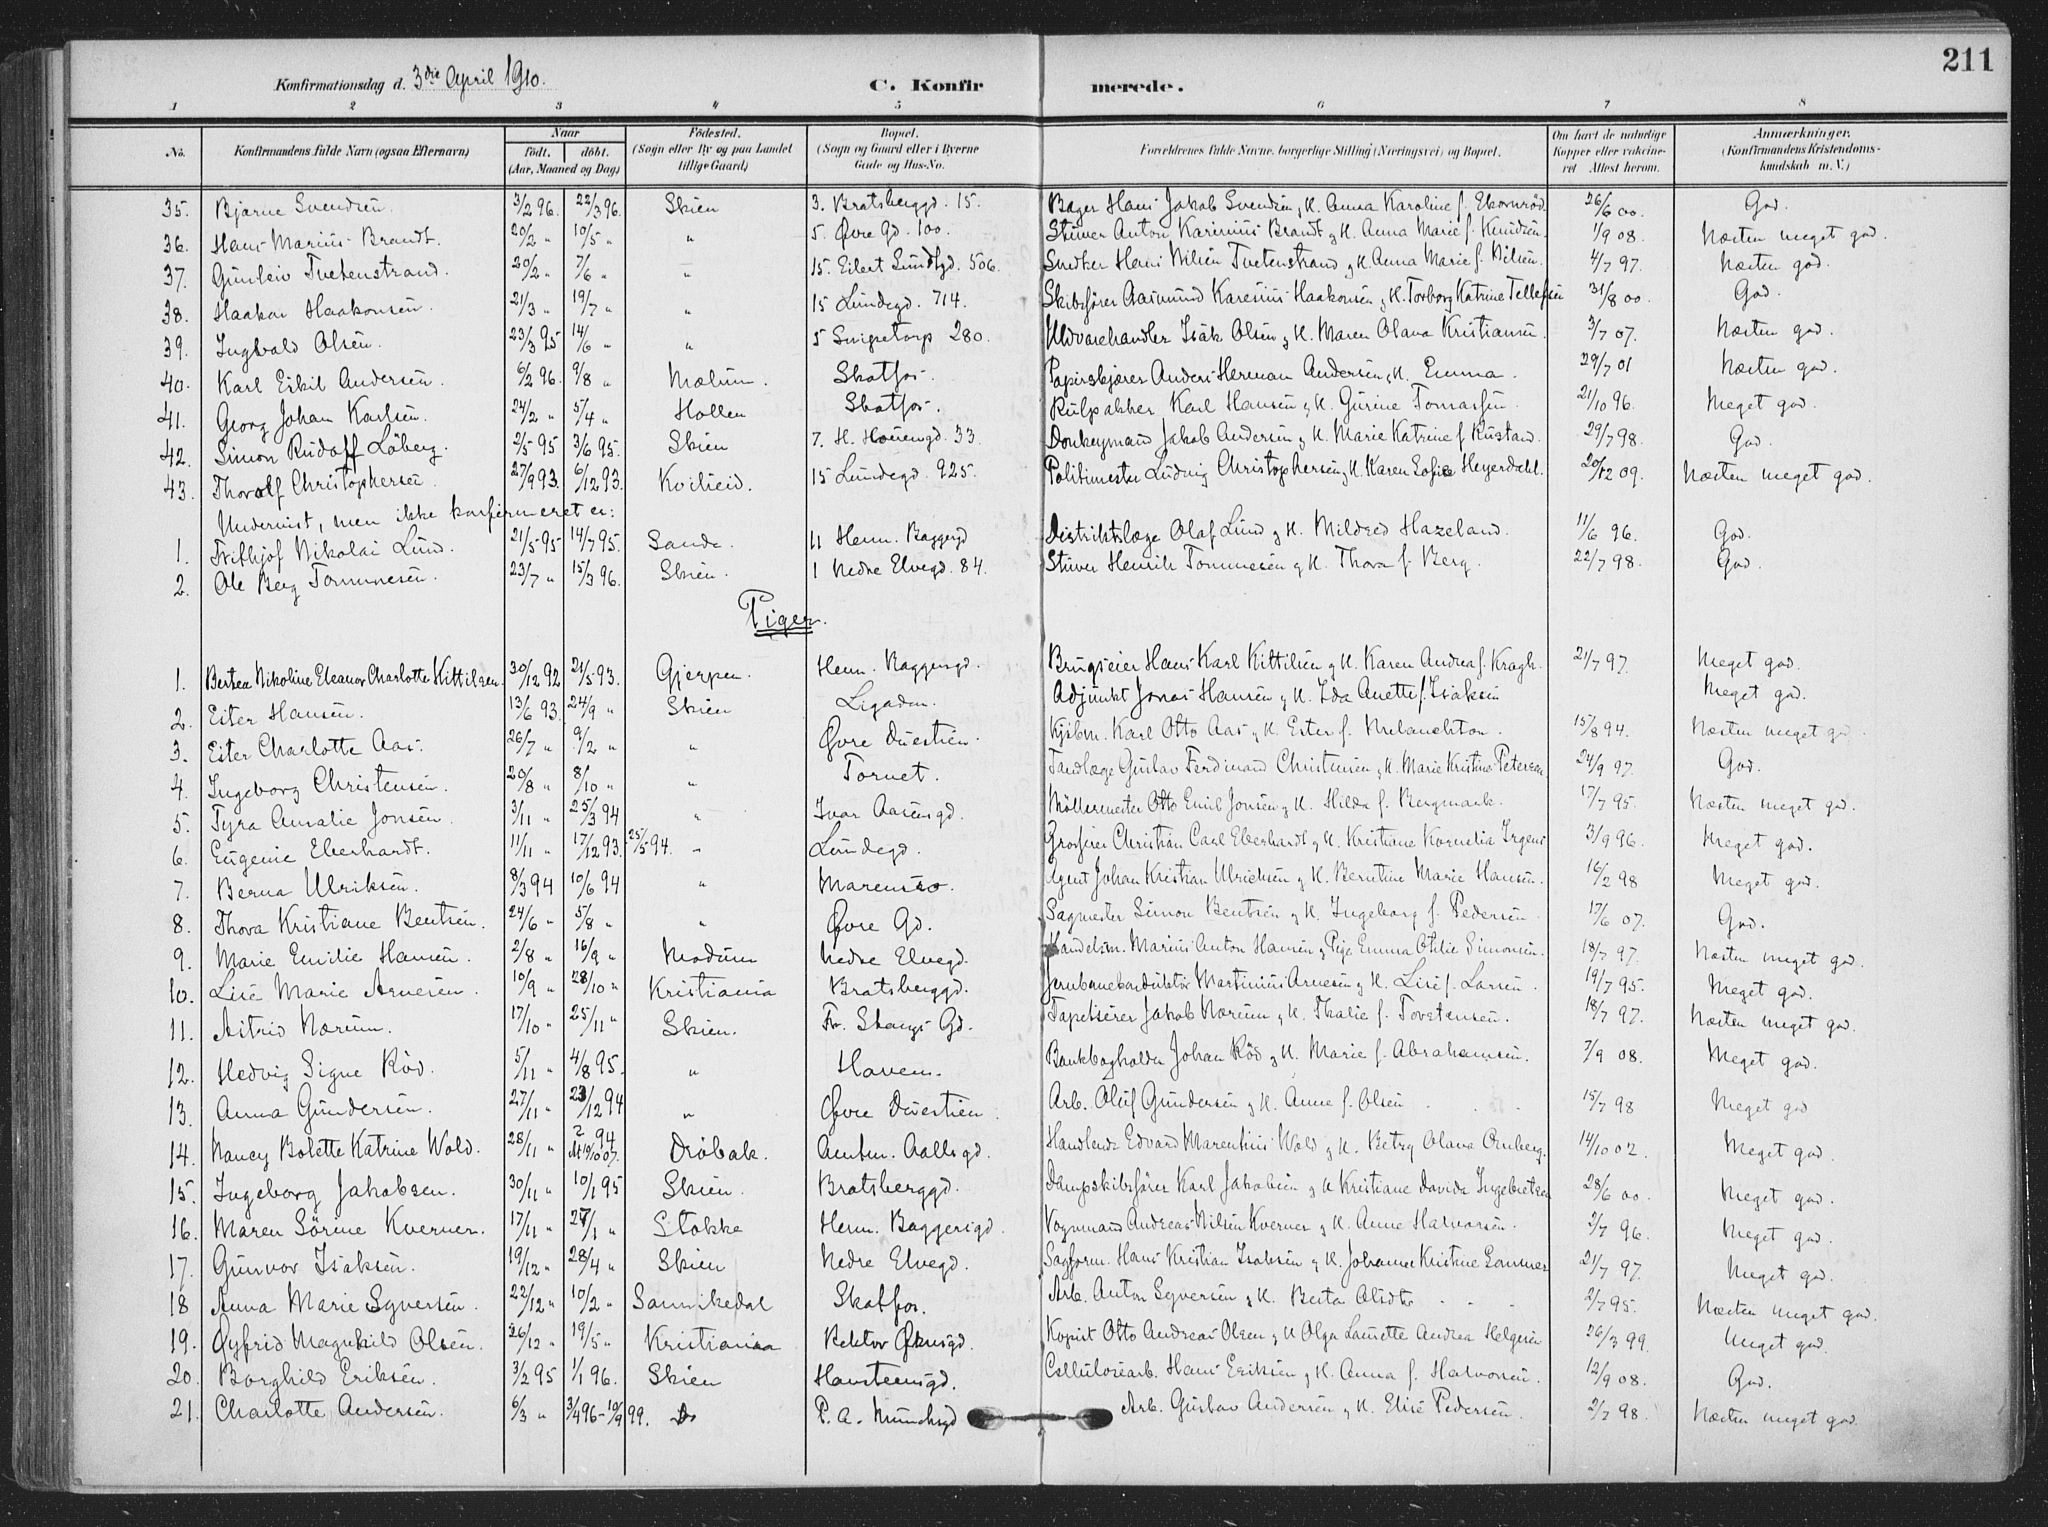 211
Konfirmationsdag d. 3die April 1910.
C. Konfirmerede.
1 2 3 4 5 6 7 8
No. Konfirmandens fulde Navn (ogsaa Efternavn) Naar født. døbt. (Aar, Maaned og Dag) Fødested. (Sogn eller By og paa Landet tillige Gaard) Bopæl. (Sogn og Gaard eller i Byerne Gade og Hus-No. Forældrenes fulde Navne, borgerlige Stilling (Næringsvei) og Bopæl. Om havt de naturlige Kopper eller vakcineret Attest herom. Anmærkninger. (Konfirmandens Kristendomskundskab m. V.)
35. Bjarne Svendsen. 3/2 96. 22/3 96. Skien 3. Bratsberggd. 15. Bager Hans Jakob Svendsen, H. Anna Karoline f. Ekornrød. 26/6 00. God.
36. Hans Marius Brandt. 20/2 " 10/5 " " 5. Øvre Gd. 100. Stuver Anton Karinius Brandt og H. Anna Marie f. Knudsen. 1/9 08. Næsten meget god.
37. Gunleiv Tvetenstrand. 20/2 " 7/6 " " 15. Eilert Sundtgd. 506. Snedker Hans Nilsen Tvetenstrand og H. Anna Marie f. Nilsen. 4/7 97. Næsten god.
38. Haakon Haakonsen. 21/3 " 19/7 " " 15 Lundegd. 714. Skibsfører Aasmund Karenius Haakonsen og H. Torborg Katrine Tellefsen 31/8 00. God.
39. Ingvald Olsen. 23/3 95 14/6 " " 5 Snipetorp 280. Uldvarehandler Isak Olsen og H. Maren Olava Kristiansen. 3/7 07. Næsten god.
40. Karl Eikil Andersen. 6/2 96. 9/8 " Mælum. Skotfos. Papirskjører Anders Herman Andersen og H. Emma. 29/7 01 Næsten god.
41. Georg Johan Karlsen. 24/2 " 5/4 " Hollen Skotfos. Rulpakker Karl Hansen og H. Gurine Tomassen. 21/10 96. Meget god.
42. Simon Rudolf Løberg. 2/5 95 3/6 95. Skien 7. H. Houengd. 33. Donkeymand Jakob Andersen og H. Marie Katrine f. Rustad. 29/7 98. God.
43. Thorolf Christophersen. 27/9 93. 6/12 93. Kviteseid. 15 Lundegd. 925. Politimester Ludvig Christophersen og H. Karen Sofie Heyerdahl. 20/12 09. Næsten meget god.
Undervist, men ikke konfirmeret er:
1. Frithjof Nikolai Lund. 21/5 95 14/7 95. Sande. 11 Henn. Baggegd Distriktslæge Olaf Lund og H. Mildred Hazeland. 11/6 96. God.
2. Ole Berg Tommesen. 23/7 " 15/3 96. Skien. 1 Nedre Elvegd. 84. Stuver Henrik Tommesen og H. Thora f. Berg. 22/7 98. God.
Piger.
1. Bertea Nikoline Eleanor Charlotte Kittilsen. 30/12 92 21/5 93. Gjerpen. Henn. Baggesgd. Brugseier Hans Karl Kittilsen og H. Karen Andrea f. Kragh. 21/7 97. Meget god.
2. Ester Hansen. 13/6 93. 24/9 " Skien Ligaden. Adjunkt Jonas Hansen og H. Ida Anette f. Isaksen Meget god.
3. Ester Charlotte Aas. 26/7 " 9/2 " " Øvre Duestien. Kjøbm. Karl Otto Aas og H. Ester f. Melanchton. 15/8 94. Næsten meget god.
4. Ingeborg Christensen. 20/8 " 8/10 " " Torvet. Tandlæge Gustav Ferdinand Christensen og H. Marie Kristine Petersen 24/9 97. God.
5. Tyra Amalie Jonsen. 3/11 " 25/3 94 " Ivar Aasensgd. Møllermester Otto Emil Jonsen og H. Hilda f. Bergmark. 17/7 95. Næsten meget god.
6. Eugenie Eberhardt. 11/11 " 17/12 93. 25/5 94. " Lundegd. Grosserer Christian Carl Eberhardt og H. Kristiane Kornelia Irgens 3/9 96. Meget god.
7. Berna Ulriksen. 8/3 94 10/6 94 " Marensro. Agent Johan Kristian Ulricksen og H. Berntine Marie Hansen. 16/2 98 Meget god.
8. Thora Kristiane Bentsen. 24/6 " 5/8 " " Øvre Gd. Sagmester Simon Bentsen og H. Ingeborg f. Pedersen. 17/6 07. God.
9. Marie Emilie Hansen. 2/8 " 16/9 " Modum Nedre Elvegd. Handelsm. Marius Anton Hansen og Pige Emma Otilie Simonsen. 18/7 97. Næsten meget god.
10. Lise Marie Arnesen. 10/9 " 28/10 " Kristiania Bratsberggd. Jernbanekonduktør Martinius Arnesen og H. Lise f. Larsen 19/7 95. Meget god.
11. Astrid Nærum. 17/10 " 25/11 " Skien. Fr. Stangs Gd. Tapetserer Jakob Nærum og H. Thalie f. Tovetensen. 18/7 97. Næsten meget god.
12. Hedvig Signe Rød. 5/11 " 4/8 95. " Haven. Bankbogholder Johan Rød og H. Marie f. Abrahamsen. 7/9 08. Meget god.
13. Anna Gundersen. 27/11 " 23/12 94 " Øvre Duestien Arb. Oluf Gundersen og H. Anne f. Olsen 15/7 98 Meget god
14. Nancy Bolette Katrine Wold. 28/11 " Drøbak. Amtm. Aallsgd. Handlende Edvard Marentius Wold og H. Betzy Olava Omberg. 14/10 02. Meget god.
15. Ingeborg Jakobsen. 30/11 " 10/1 95 Skien. Bratsberggd. Dampskibsfører Karl Jakobsen og H Kristiane Davida Ingebretsen 28/6 00. Meget god.
16. Maren Sørine Kverner. 17/11 " 27/1 " Stokke Henn. Baggesgd. Vognmand Andreas Nilsen Kverner og H. Anne Halvorsen. 2/7 96. Meget god.
17. Gunvor Isaksen. 19/12 " 28/4 " Skien Nedre Elvegd. Sagform. Hans Kristian Isaksen og H. Johanne Kristine Sommer 21/7 97. Meget god.
18 Anna Marie Syversen. 22/12 " 10/2 " Sannikedal Skotfos. Arb. Anton Syversen og H. Berta Olsdtr 2/7 95. Næsten meget god.
19. Øyfrid Magnhild Olsen. 26/12 " 19/5 " Kristiania Rektor Ørnsgd. Kopist Otto Andreas Olsen og H Olga Laurette Andrea Helgesen 26/3 99. Meget god.
20. Borghild Eriksen. 3/2 95 1/1 96. Skien Hansteensgd. Cellulosearb. Hans Eriksen og H. Anna f. Halvorsen. 12/9 08. God.
21. Charlotte Andersen. 6/3 " 3/4 96 - 10/9 99. Do P. A. Munchsgd Arb. Gustav Andersen og H. Elise Pedersen. 2/7 98. Næsten meget god.